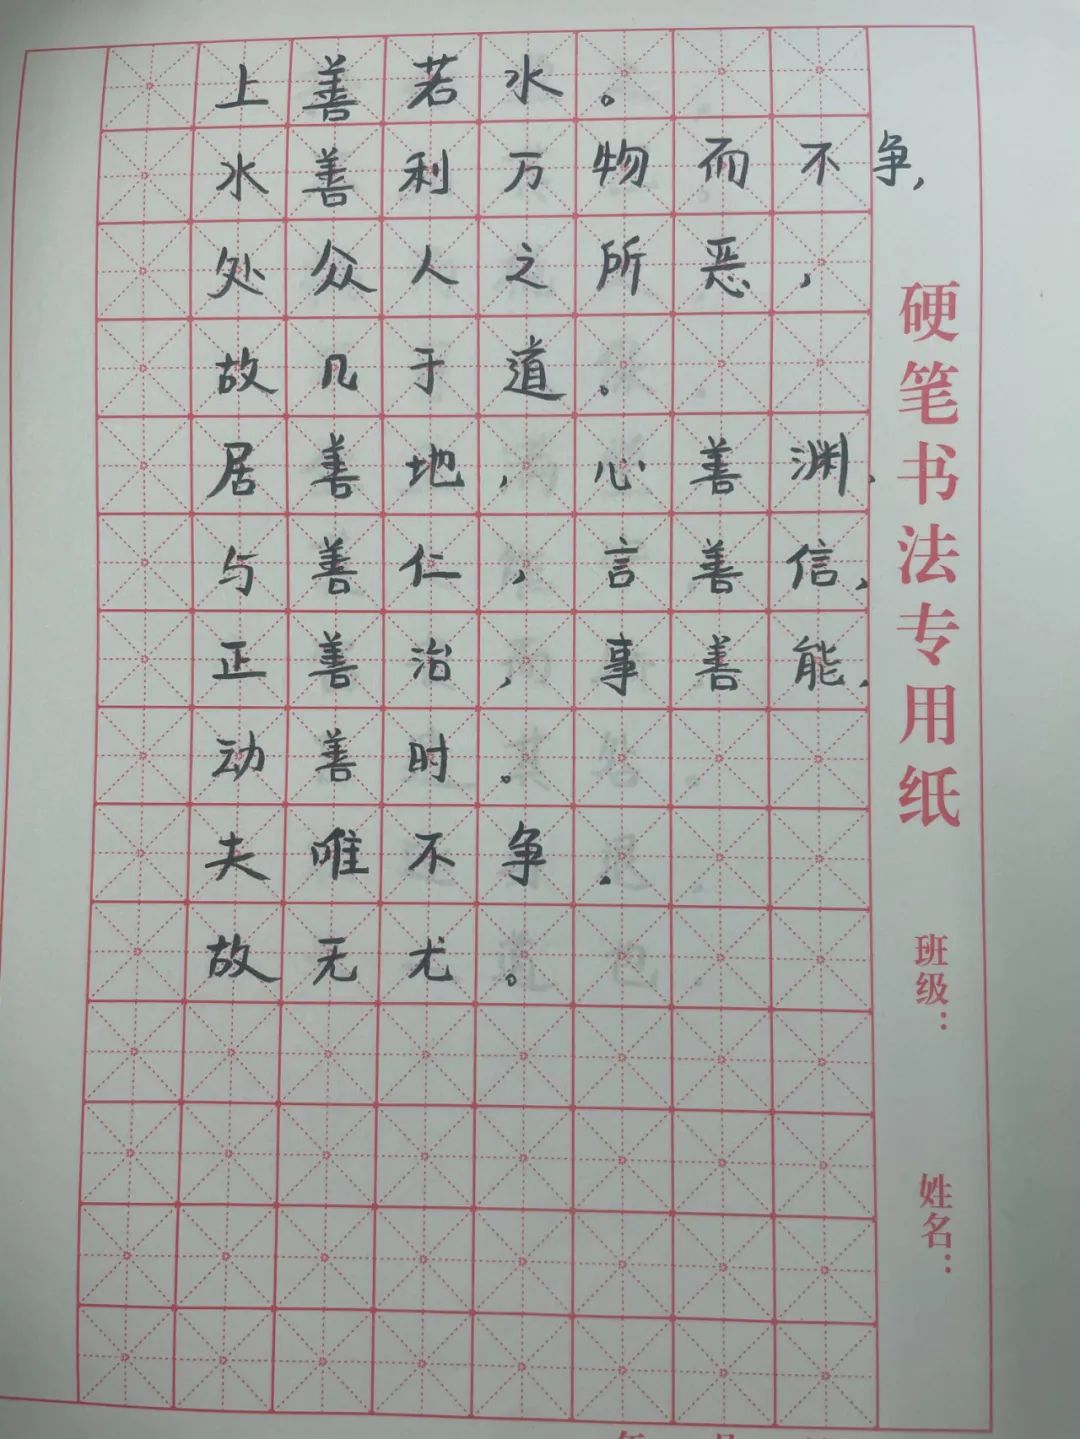 上善若水。
水善利万物而不争,
处众人之所恶,
故几于道。
居善地,心善渊,
与善仁,言善信,
正善治,事善能,
动善时。
夫唯不争.
故无尤。
硬笔书法专用纸
班级：
姓名：